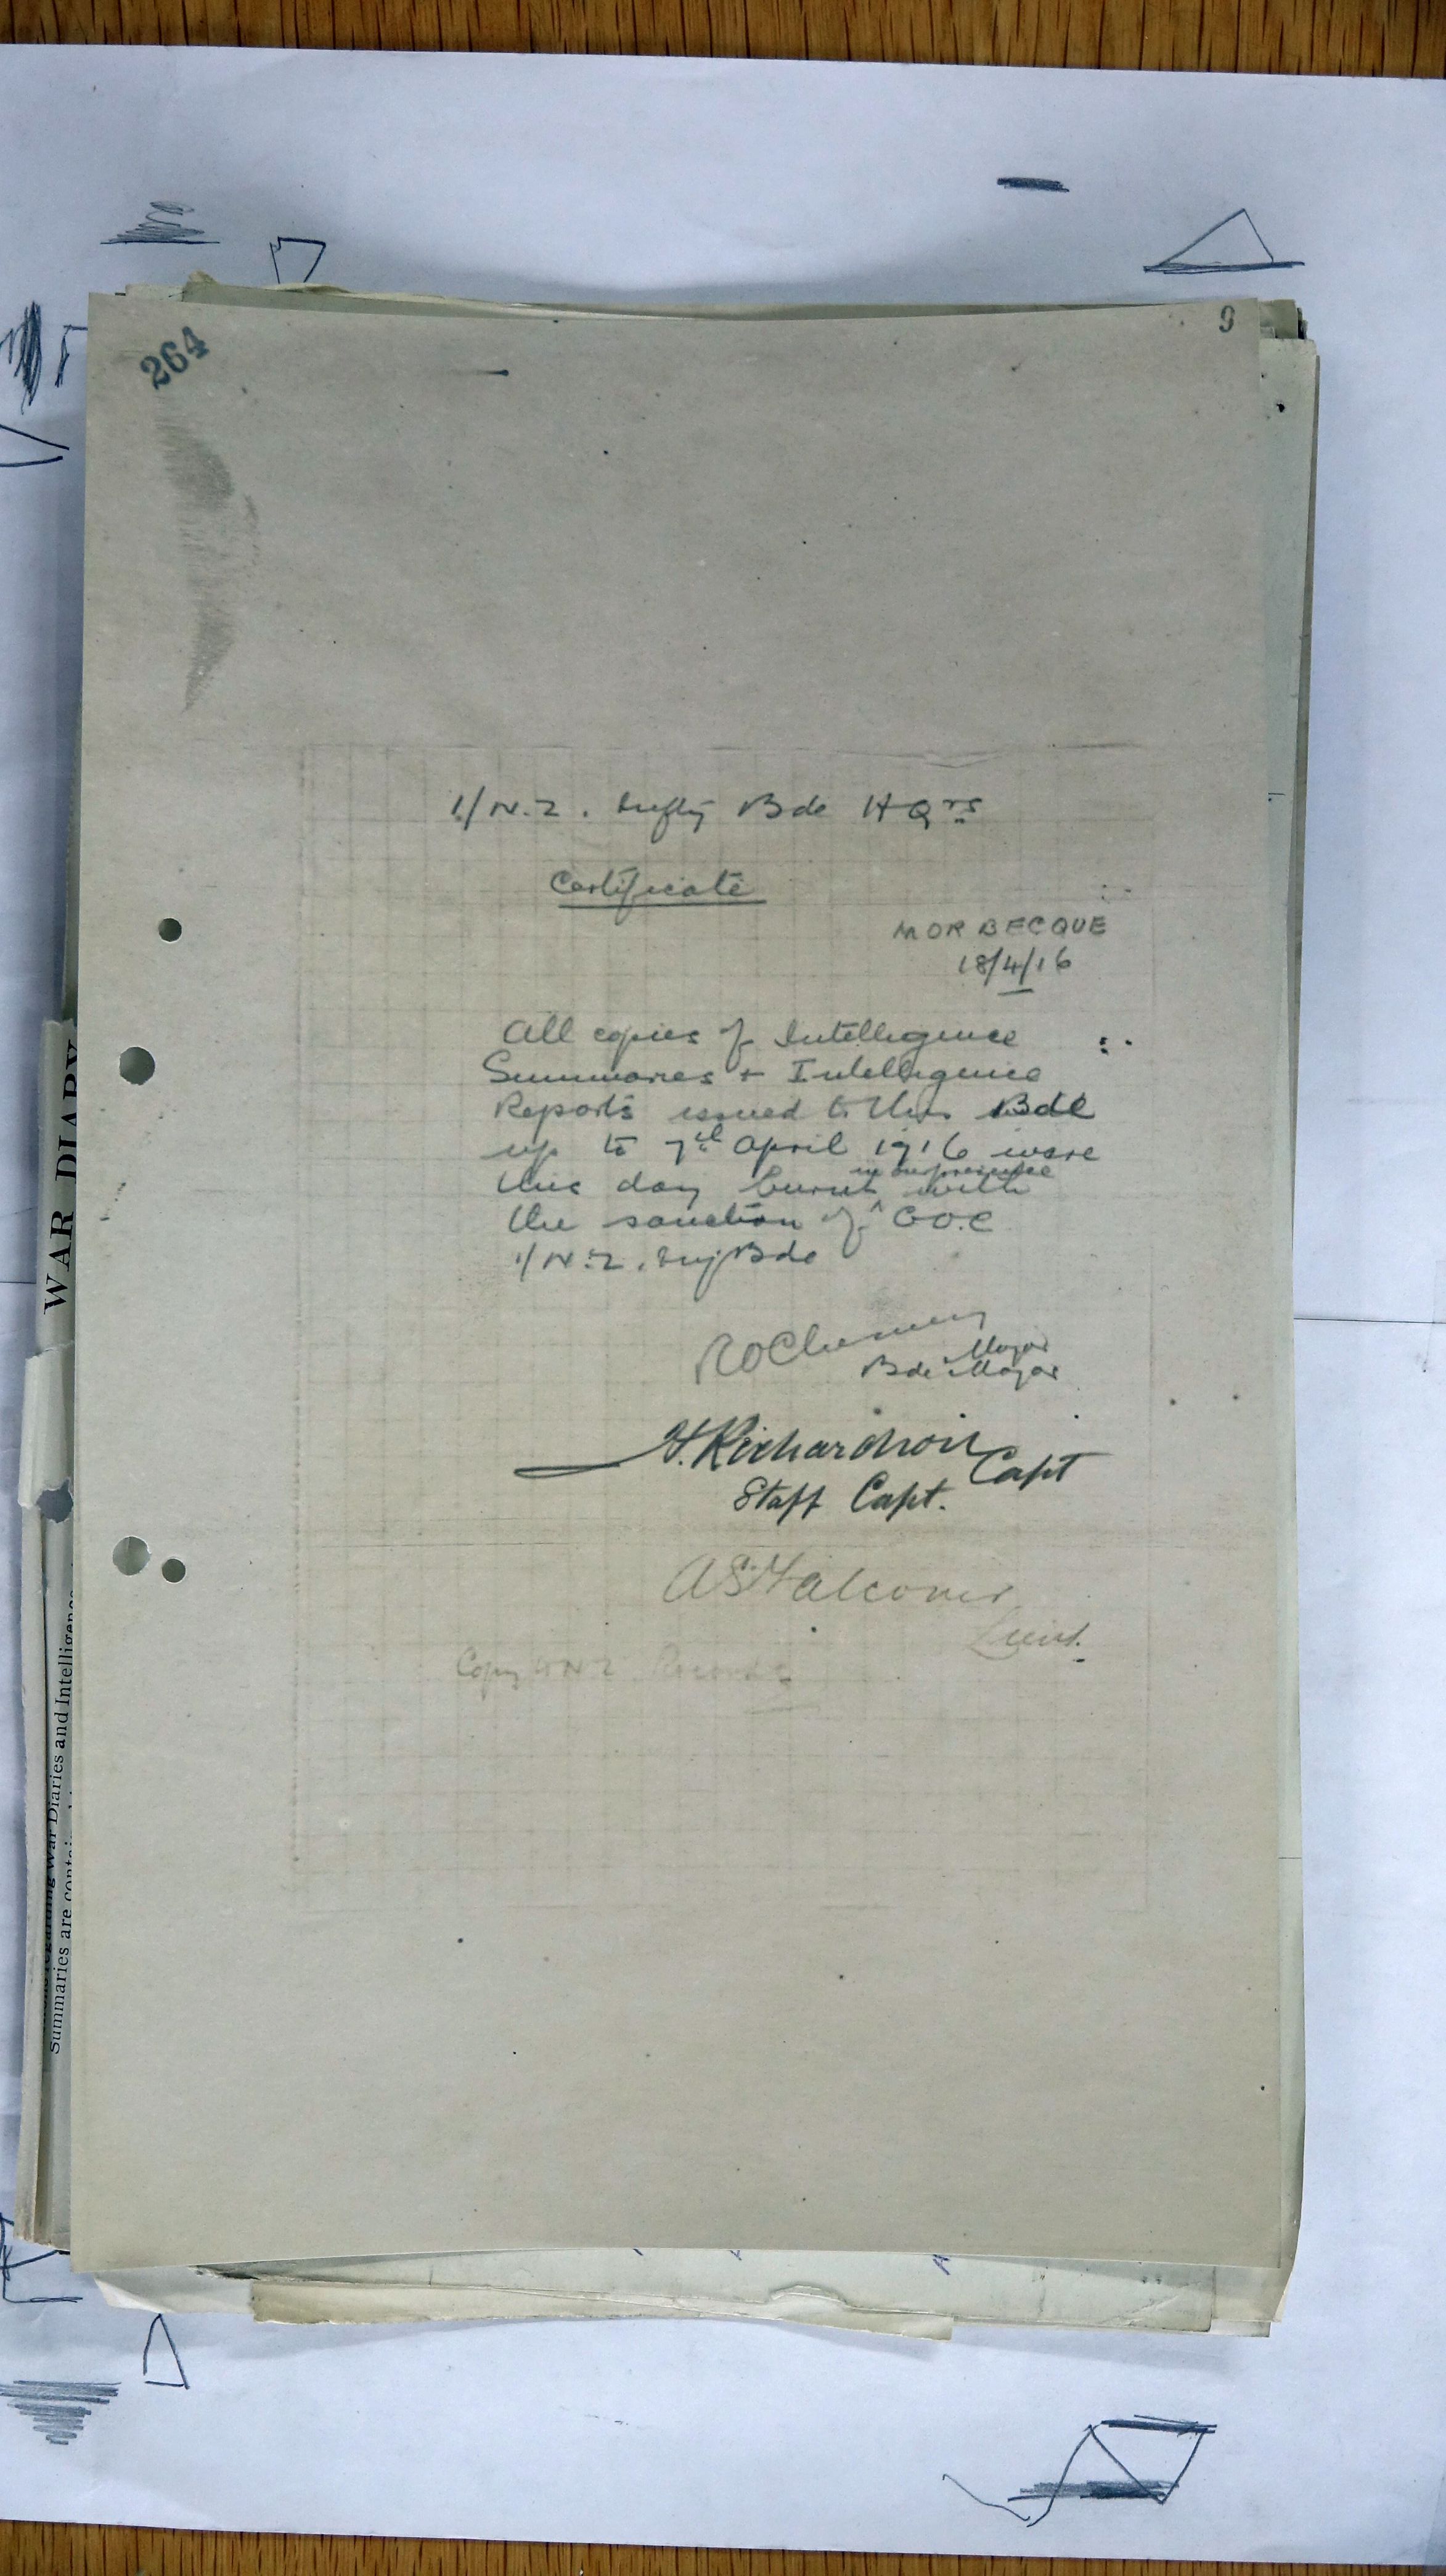 264
9
1/N.Z. Infty Bde HQrs
Certificate
MORBECQUE
18/4/16
All copies of Intelligence
Summaries + Intelligence
Reports issued to this Bde
up to 7th April 1916 were
in our presence
this day burnt ^ with
the sanction of G.O.C
1/N.Z. Inf Bde
Major
Bde Major
H. Richardson Capt
Staff Capt.
A S Falconer
Lieut.
Copy to NZ Records
WAR DIARY
regarding War Diaries and Intelligence
Summaries are